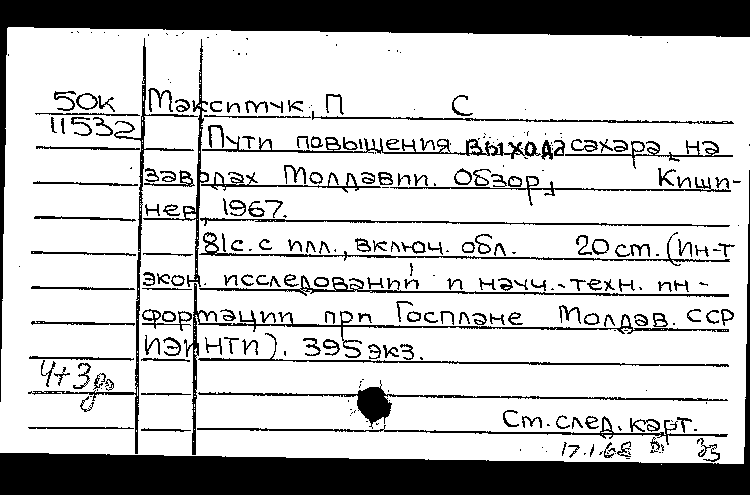 50к Максимчук, П С
11532 Пути повышения выхода сахара на
заводах Молдавии. Обзор. Киши-
нев, 1967.
81с. с илл., включ. обл. 20 см. (Ин-т
экон. исследований и науч.-техн. ин-
формации при Госплане Молдав. ССР
ИЭИНТИ). 395 экз.
4+3
Ст. след. карт.
17.1.68